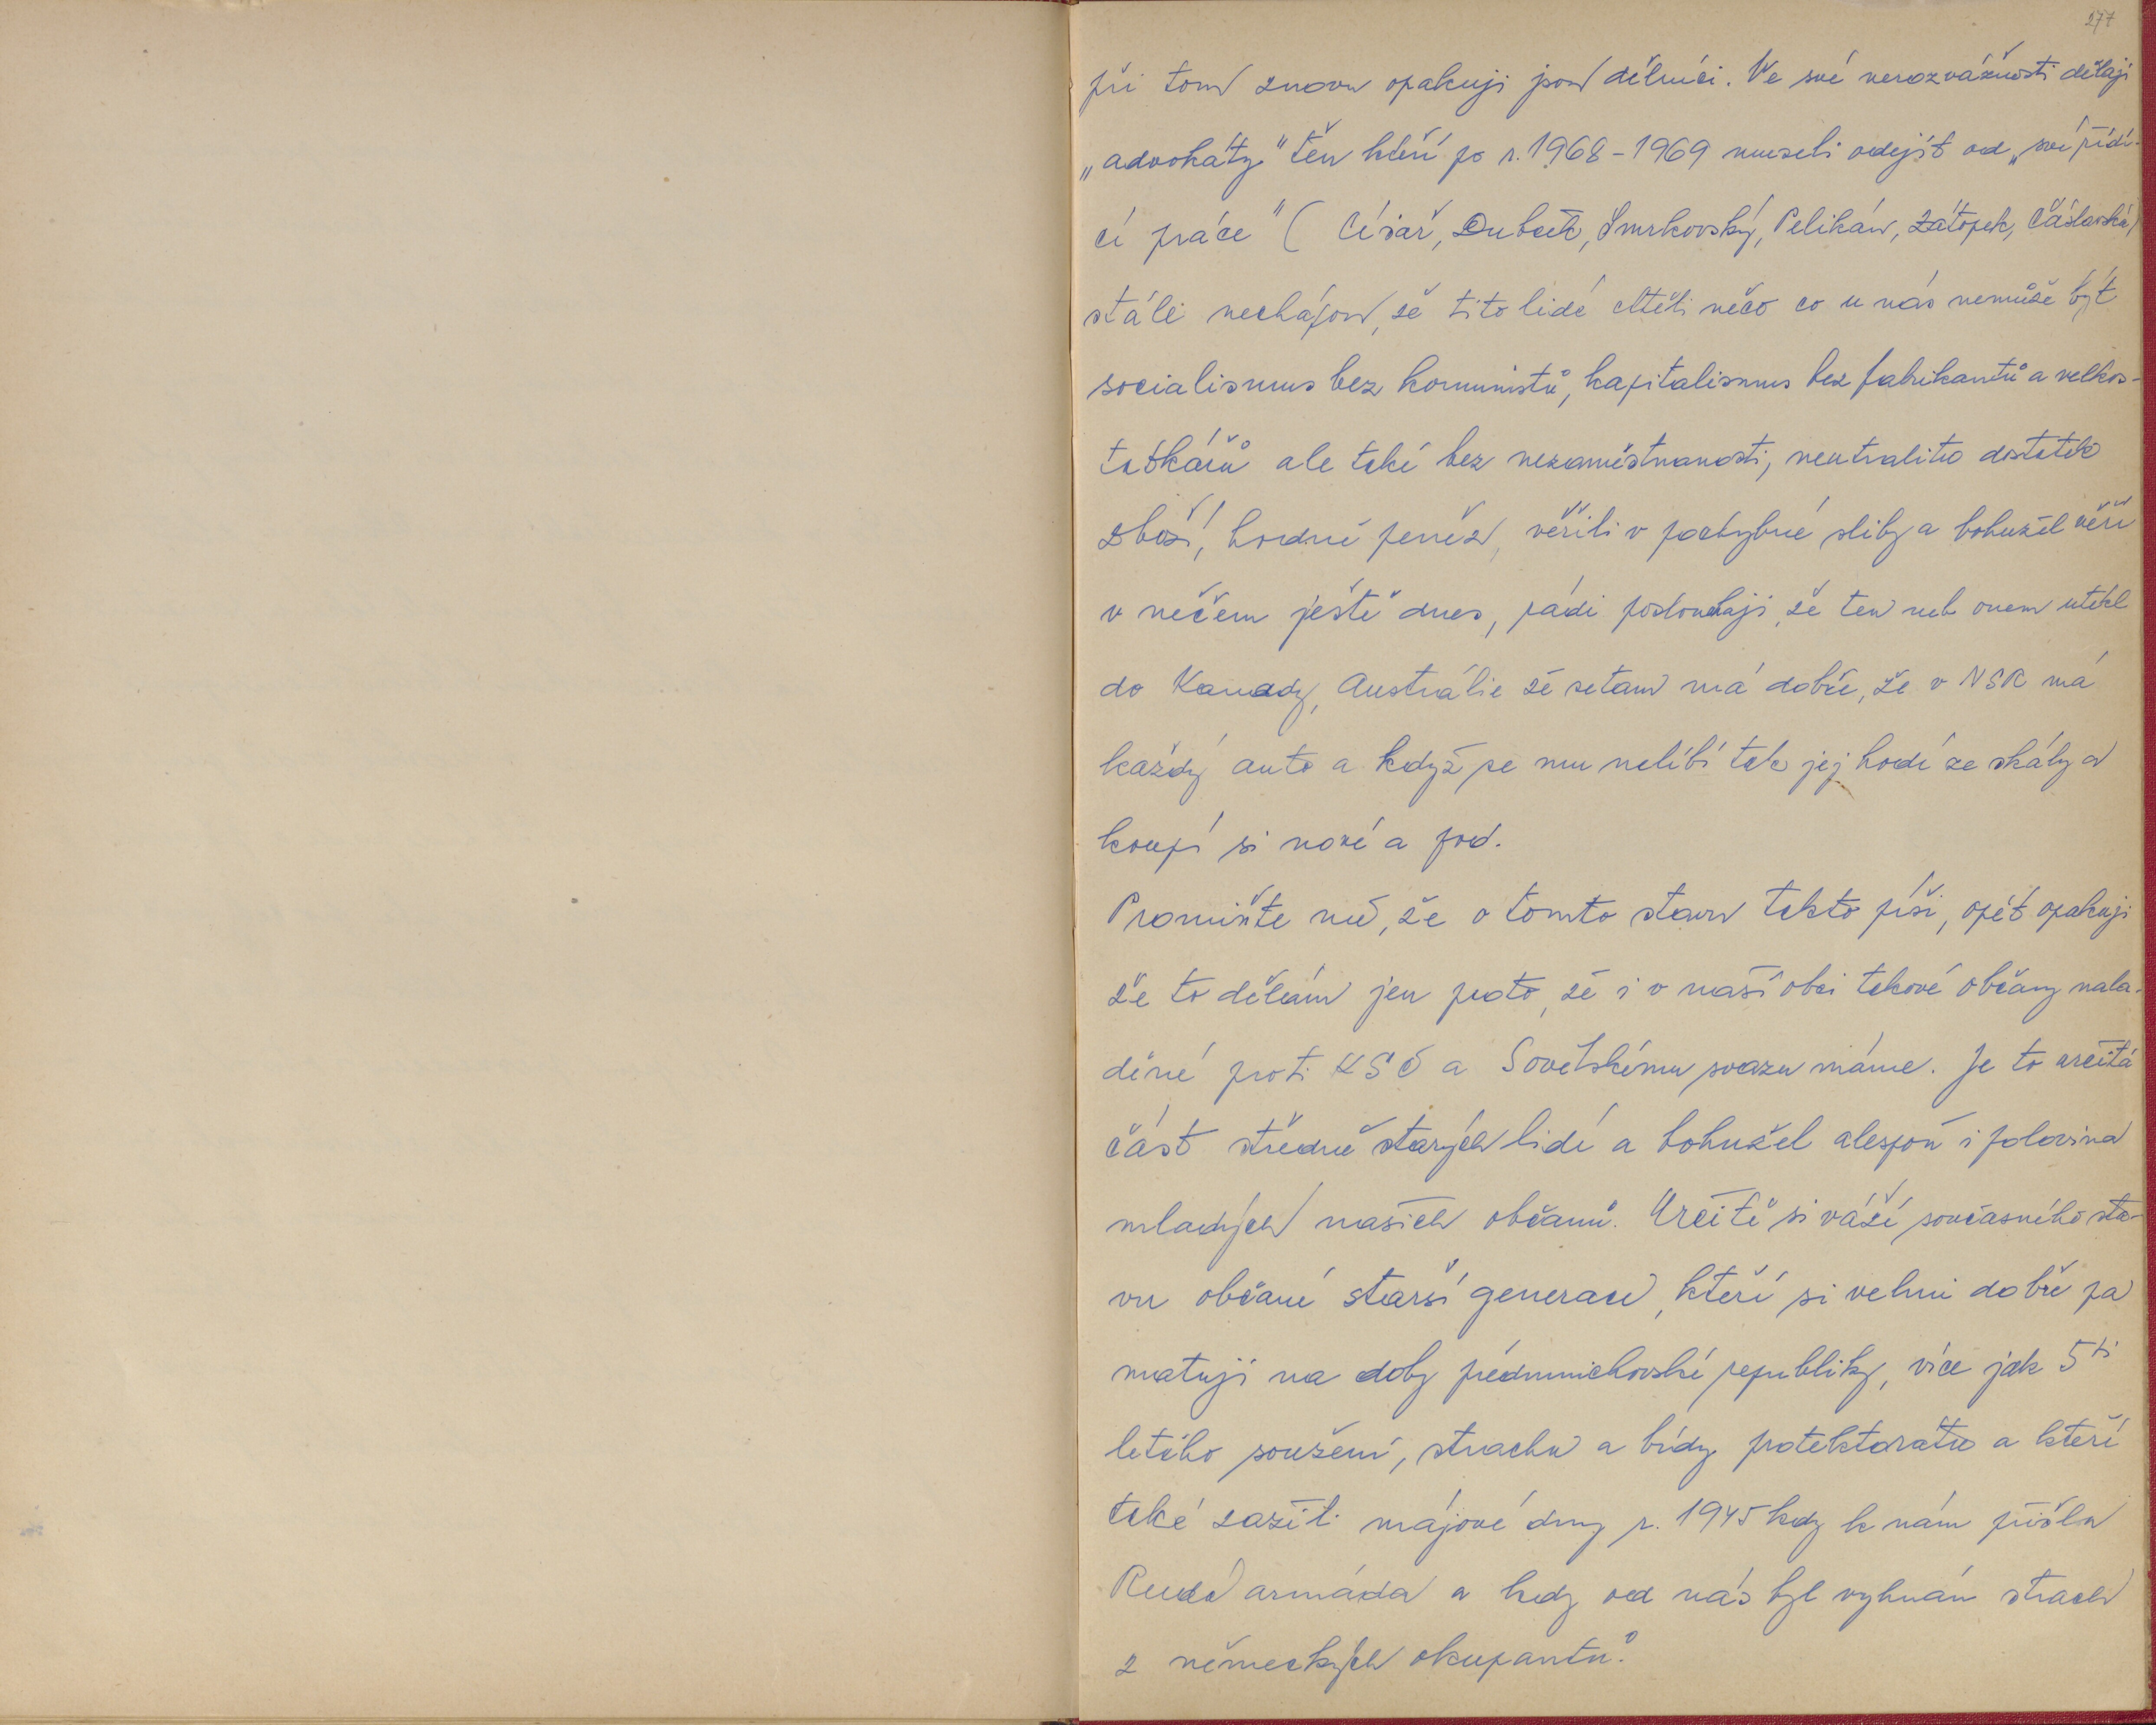 277
při tom znovu opakuji jsou dělníci. Ve své nerozvážnosti dělají
„advokáty" těm kteří po r. 1968-1969 museli odejít od „své řídí-
cí práce" ( Císař, Dubček, Smrkovský, Pelikán, Zátopek, Čáslavská)
stále nechápou, že tito lidé chtěli něco co u nás nemůže být
socialismus bez komunistů, kapitalismus bez fabrikantů a velkos-
tatkářů ale také bez nezaměstnanosti, neutralitu dostatek
zboží, hodně peněz, věřili v pochybné sliby a bohužel věří
v něčem ještě dnes, rádi poslouchají, že ten neb onen utekl
do Kanady, Austrálie že se tam má dobře, že v NSR má
každý auto a když se mu nelíbí tak jej hodí ze skály a
koupí si nové a pod.
Promiňte mě, že o tomto stavu takto píši, opět opakuji
že to dělám jen proto, že i v naší obci takové občany nala-
děné proti KSČ a Sovětskému svazu máme. Je to určitá
část středně starých lidí a bohužel alespoň i polovina
mladých našich občanů. Určitě si váží současného sta-
vu občané starší generace, kteří si velmi dobře pa
matují na doby předmnichovské republiky, více jak 5ti
letého soužení, strachu a bídy protektorátu a kteří
také zažili májové dny r. 1945 kdy k nám přišla
Rudá armáda a kdy od nás byl vyhnán strach
z německých okupantů.